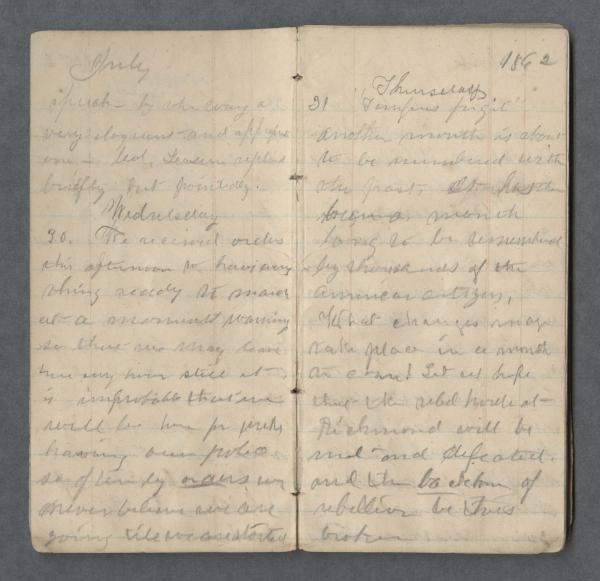 July
speech by the way a
very eloquent and appropri
one - Col. replied
briefly but pointedly.
Wednesday
30. We received orders
this afternoon to have every
thing ready to march
at a moments warning
so that we may leave
here any hour still it
is improbable that we
will be here for weeks
having been
so often by orders we
never believe we are
going till we are started
1862
Thursday
31 "Tempus fugit"
another month is about
to be numbered with
the past, It has
been a month
long to be remembered
by thousands of the
american citizens,
What changes may
take place in a month
to come! Let us hope
that the rebel horde at
Richmond will be
met and defeated
and the backbone of
rebellion be thus
broken